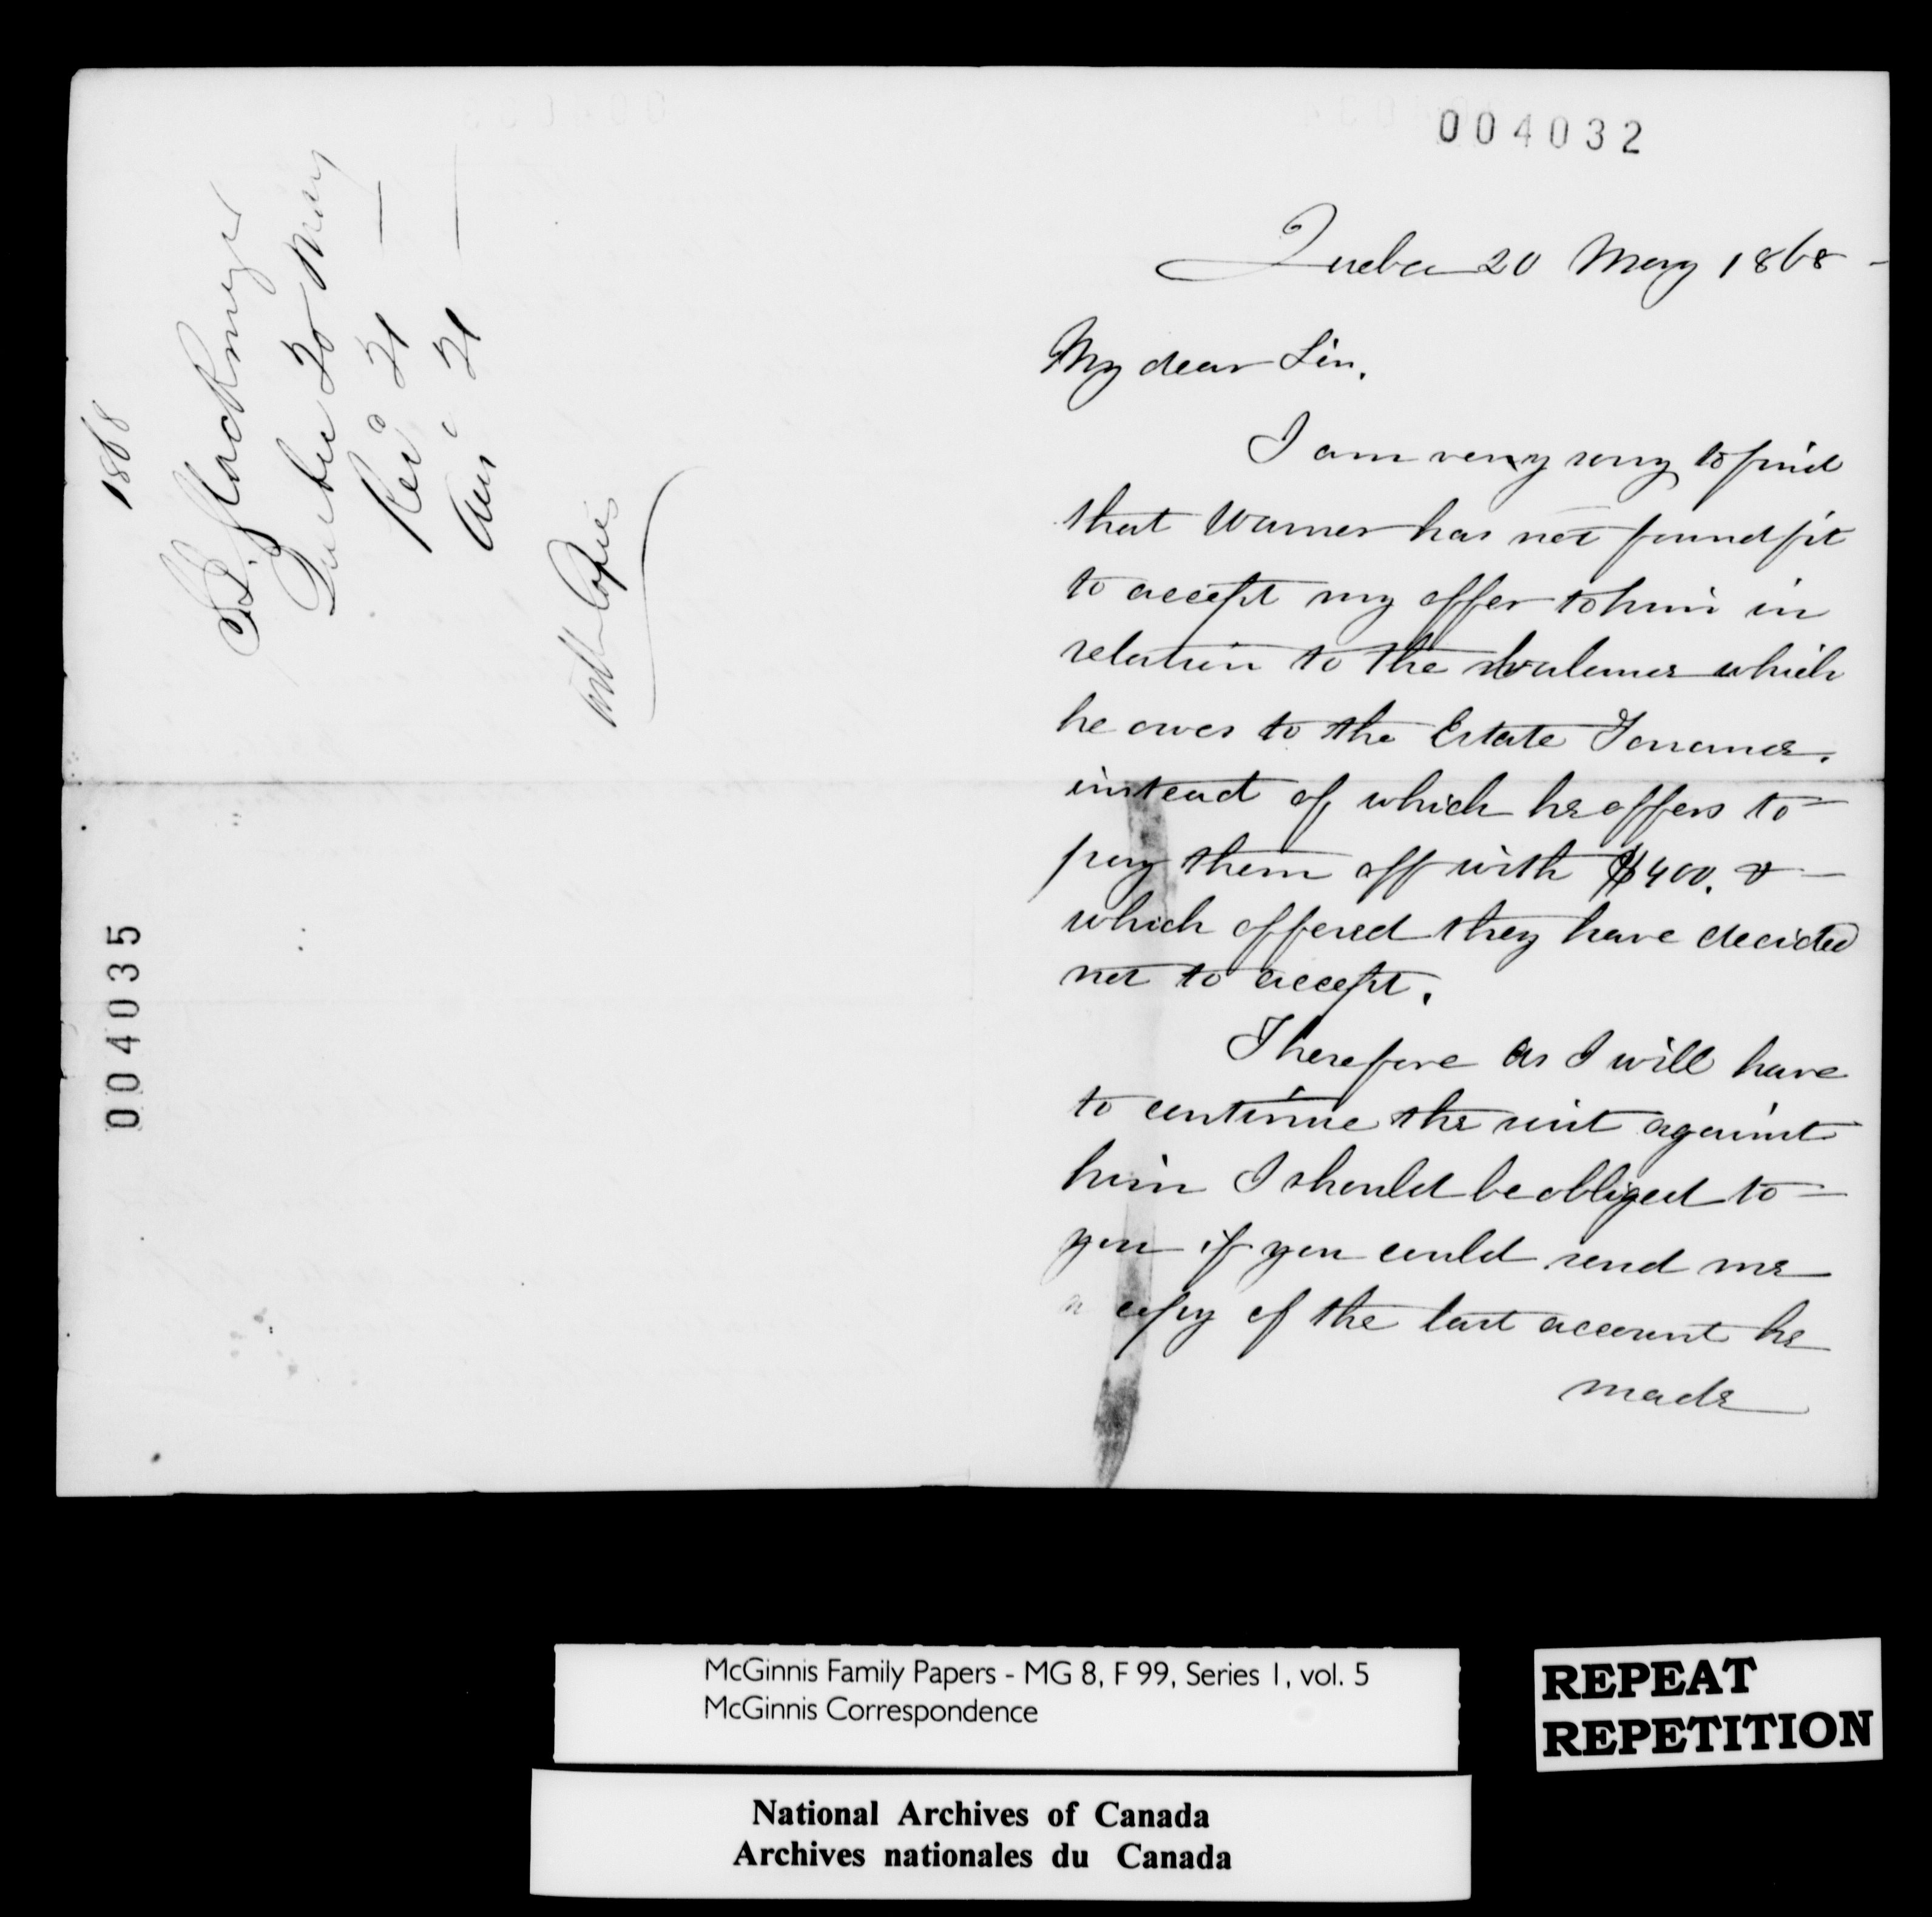 1868
S. L. MacKenzie
Quebec 20 May
Rec'd 21
Ans'd 21
with Copies
004035
004032
Quebec 20 May 1868
My dear Sir,
I am very sorry to find
that Warner has not found fit
to accept my offer to him in
relation to the balance which
he owes to the Estate
instead of which he offers to
pay them off with $400. &
which offered they have decided
not to accept.
Therefore as I will have
to continue the suit against
him I should be obliged to
you if you could send me
a copy of the last account he
made
McGinnis Family Papers - MG 8, F 99, Series 1, vol. 5
McGinnis Correspondence
REPEAT
REPETITION
National Archives of Canada
Archives nationales du Canada